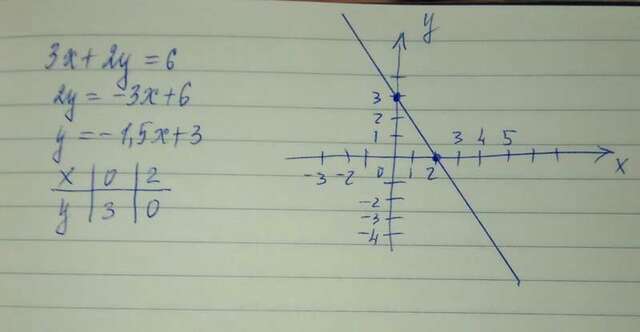 3x + 2y = 6
2y = -3x + 6
y = -1,5x + 3
x | 0 | 2
y | 3 | 0
y
3
2
1
3 4 5
-3 -2 0 1 2 x
-2
-3
-4